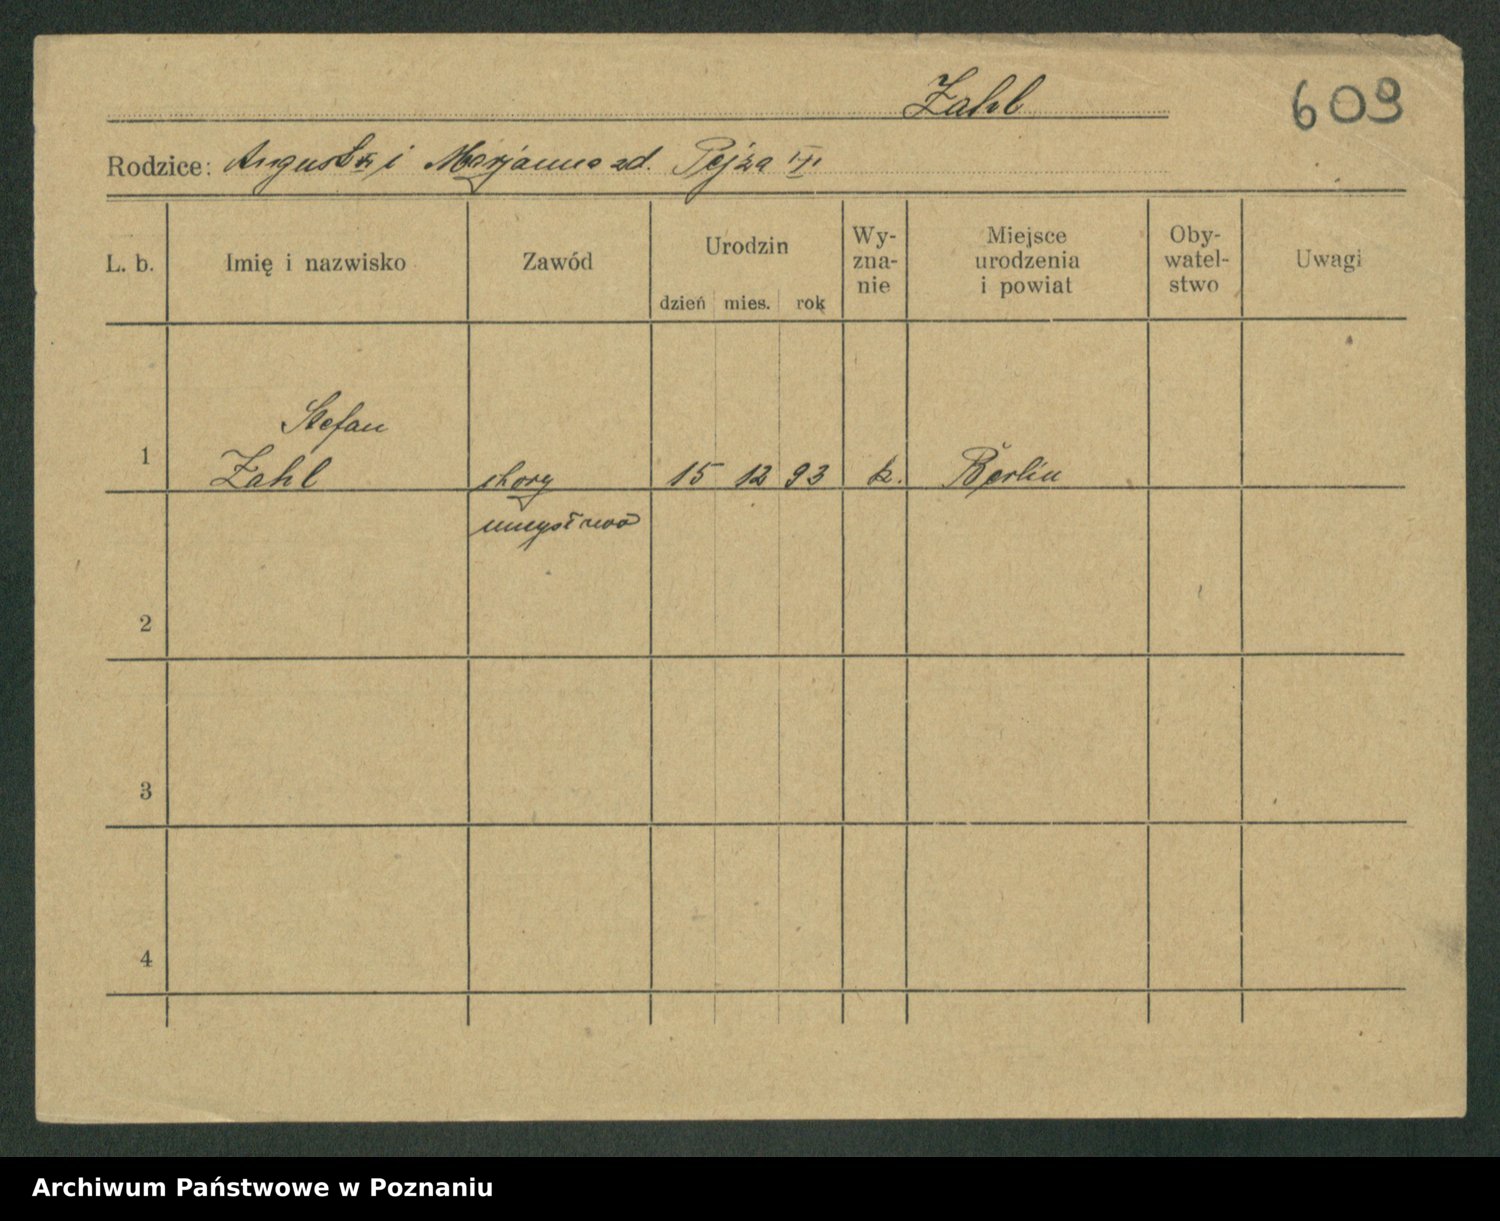 Zahl
609
Rodzice: August i Marjanna zd. Pejza
L. b. Imię i nazwisko Zawód Urodzin dzień mies. rok Wy-zna-nie Miejsce urodzenia i powiat Oby-watel-stwo Uwagi
Stefan
1 Zahl chory 15 12 93 k. Berlin
umysłowo
2
3
4
Archiwum Państwowe w Poznaniu